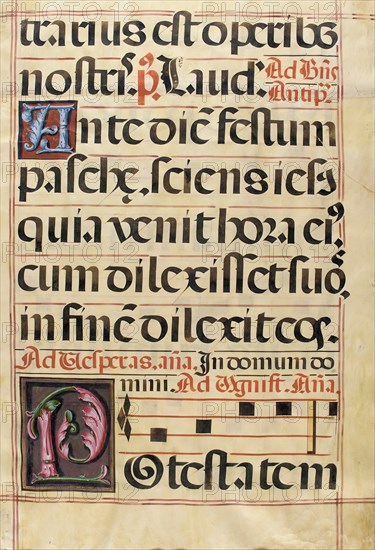 trarius est operibꝰ
nostris. p̃. Laud: Ad Bñs
Antipͣ.
Ante diē festum
pasche, sciens iesꝰ
quia venit hora eiꝰ
cum dilexisset suos,
in finē dilexit eos.
Ad Vesperas. aña. In domum do
mini. Ad Magnift. Aña.
Potestatem